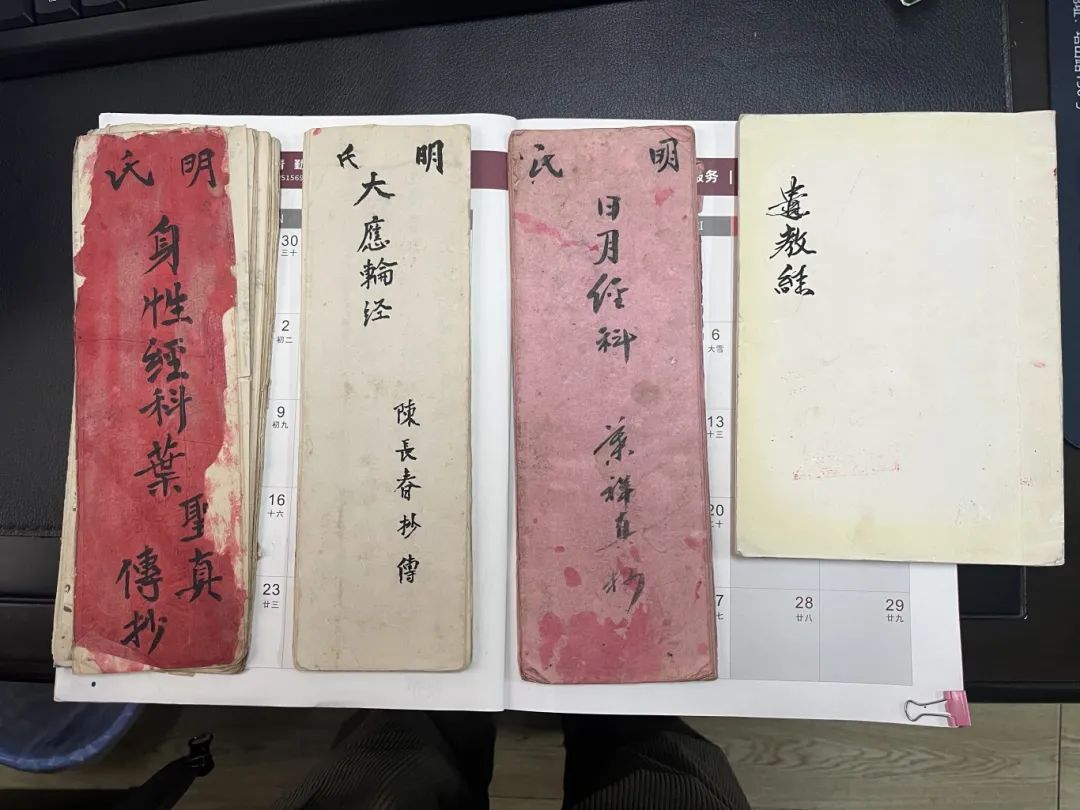 明氏
身性經科葉
聖真
傳抄
明氏
大應輪经
陳長春抄傳
明氏
日月经科
葉祥真抄
遺教経
服务
30
三十
2
初二
9
初九
16
十六
23
廿三
6
大雪
13
十三
20
二十
7
七
28
廿八
29
廿九